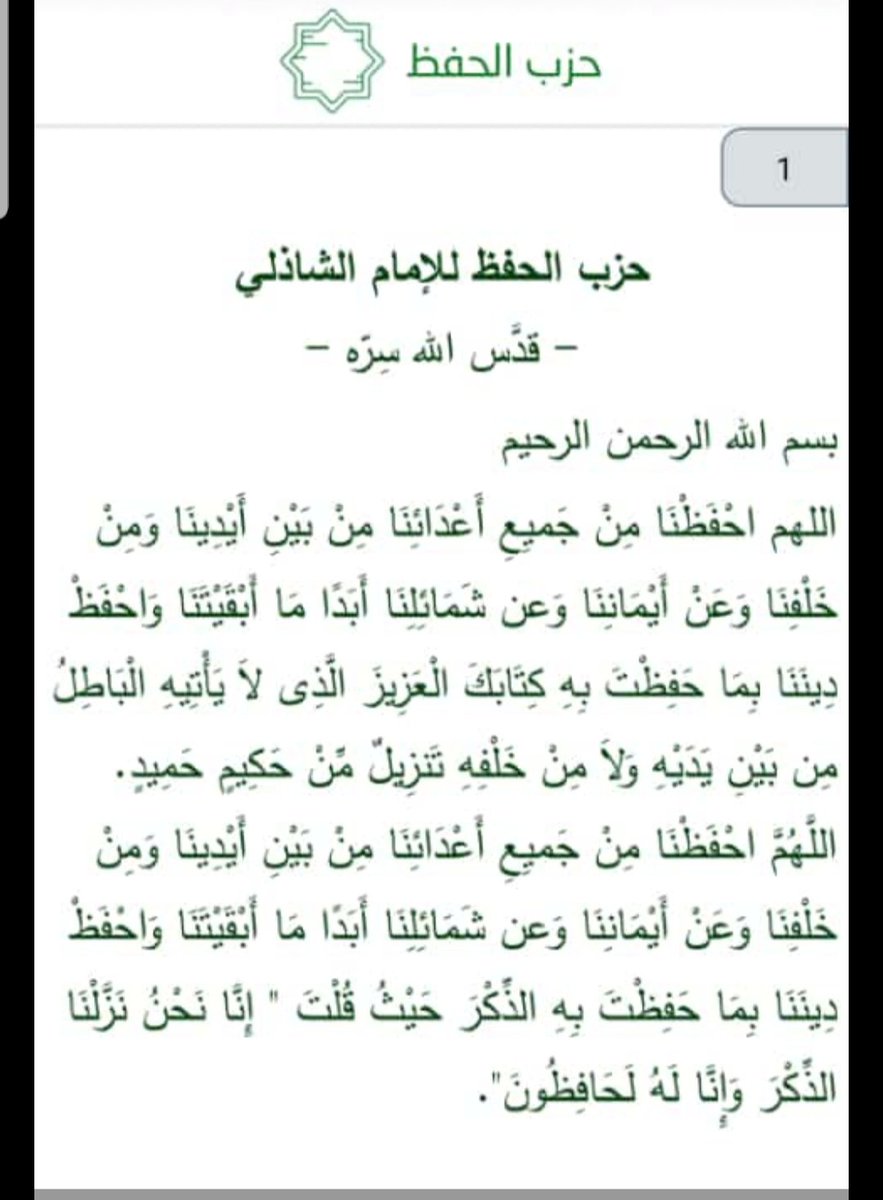 حزب الحفظ
1
حزب الحفظ للإمام الشاذلي
– قدَّس الله سِرّه –
بسم الله الرحمن الرحيم
اللهم احْفَظْنَا مِنْ جَميعِ أَعْدَائِنَا مِنْ بَيْنِ أَيْدِينَا وَمِنْ
خَلْفِنَا وَعَنْ أَيْمَانِنَا وَعن شَمَائِلِنَا أَبَدًا مَا أَبْقَيْتَنَا وَاحْفَظْ
دِينَنَا بِمَا حَفِظْتَ بِهِ كِتَابَكَ الْعَزِيزَ الَّذِى لاَ يَأْتِيهِ الْبَاطِلُ
مِن بَيْنِ يَدَيْهِ وَلاَ مِنْ خَلْفِهِ تَنزِيلٌ مِّنْ حَكِيمٍ حَمِيدٍ.
اللَّهُمَّ احْفَظْنَا مِنْ جَميعِ أَعْدَائِنَا مِنْ بَيْنِ أَيْدِينَا وَمِنْ
خَلْفِنَا وَعَنْ أَيْمَانِنَا وَعن شَمَائِلِنَا أَبَدًا مَا أَبْقَيْتَنَا وَاحْفَظْ
دِينَنَا بِمَا حَفِظْتَ بِهِ الذِّكْرَ حَيْثُ قُلْتَ " إِنَّا نَحْنُ نَزَّلْنَا
الذِّكْرَ وَإِنَّا لَهُ لَحَافِظُونَ".